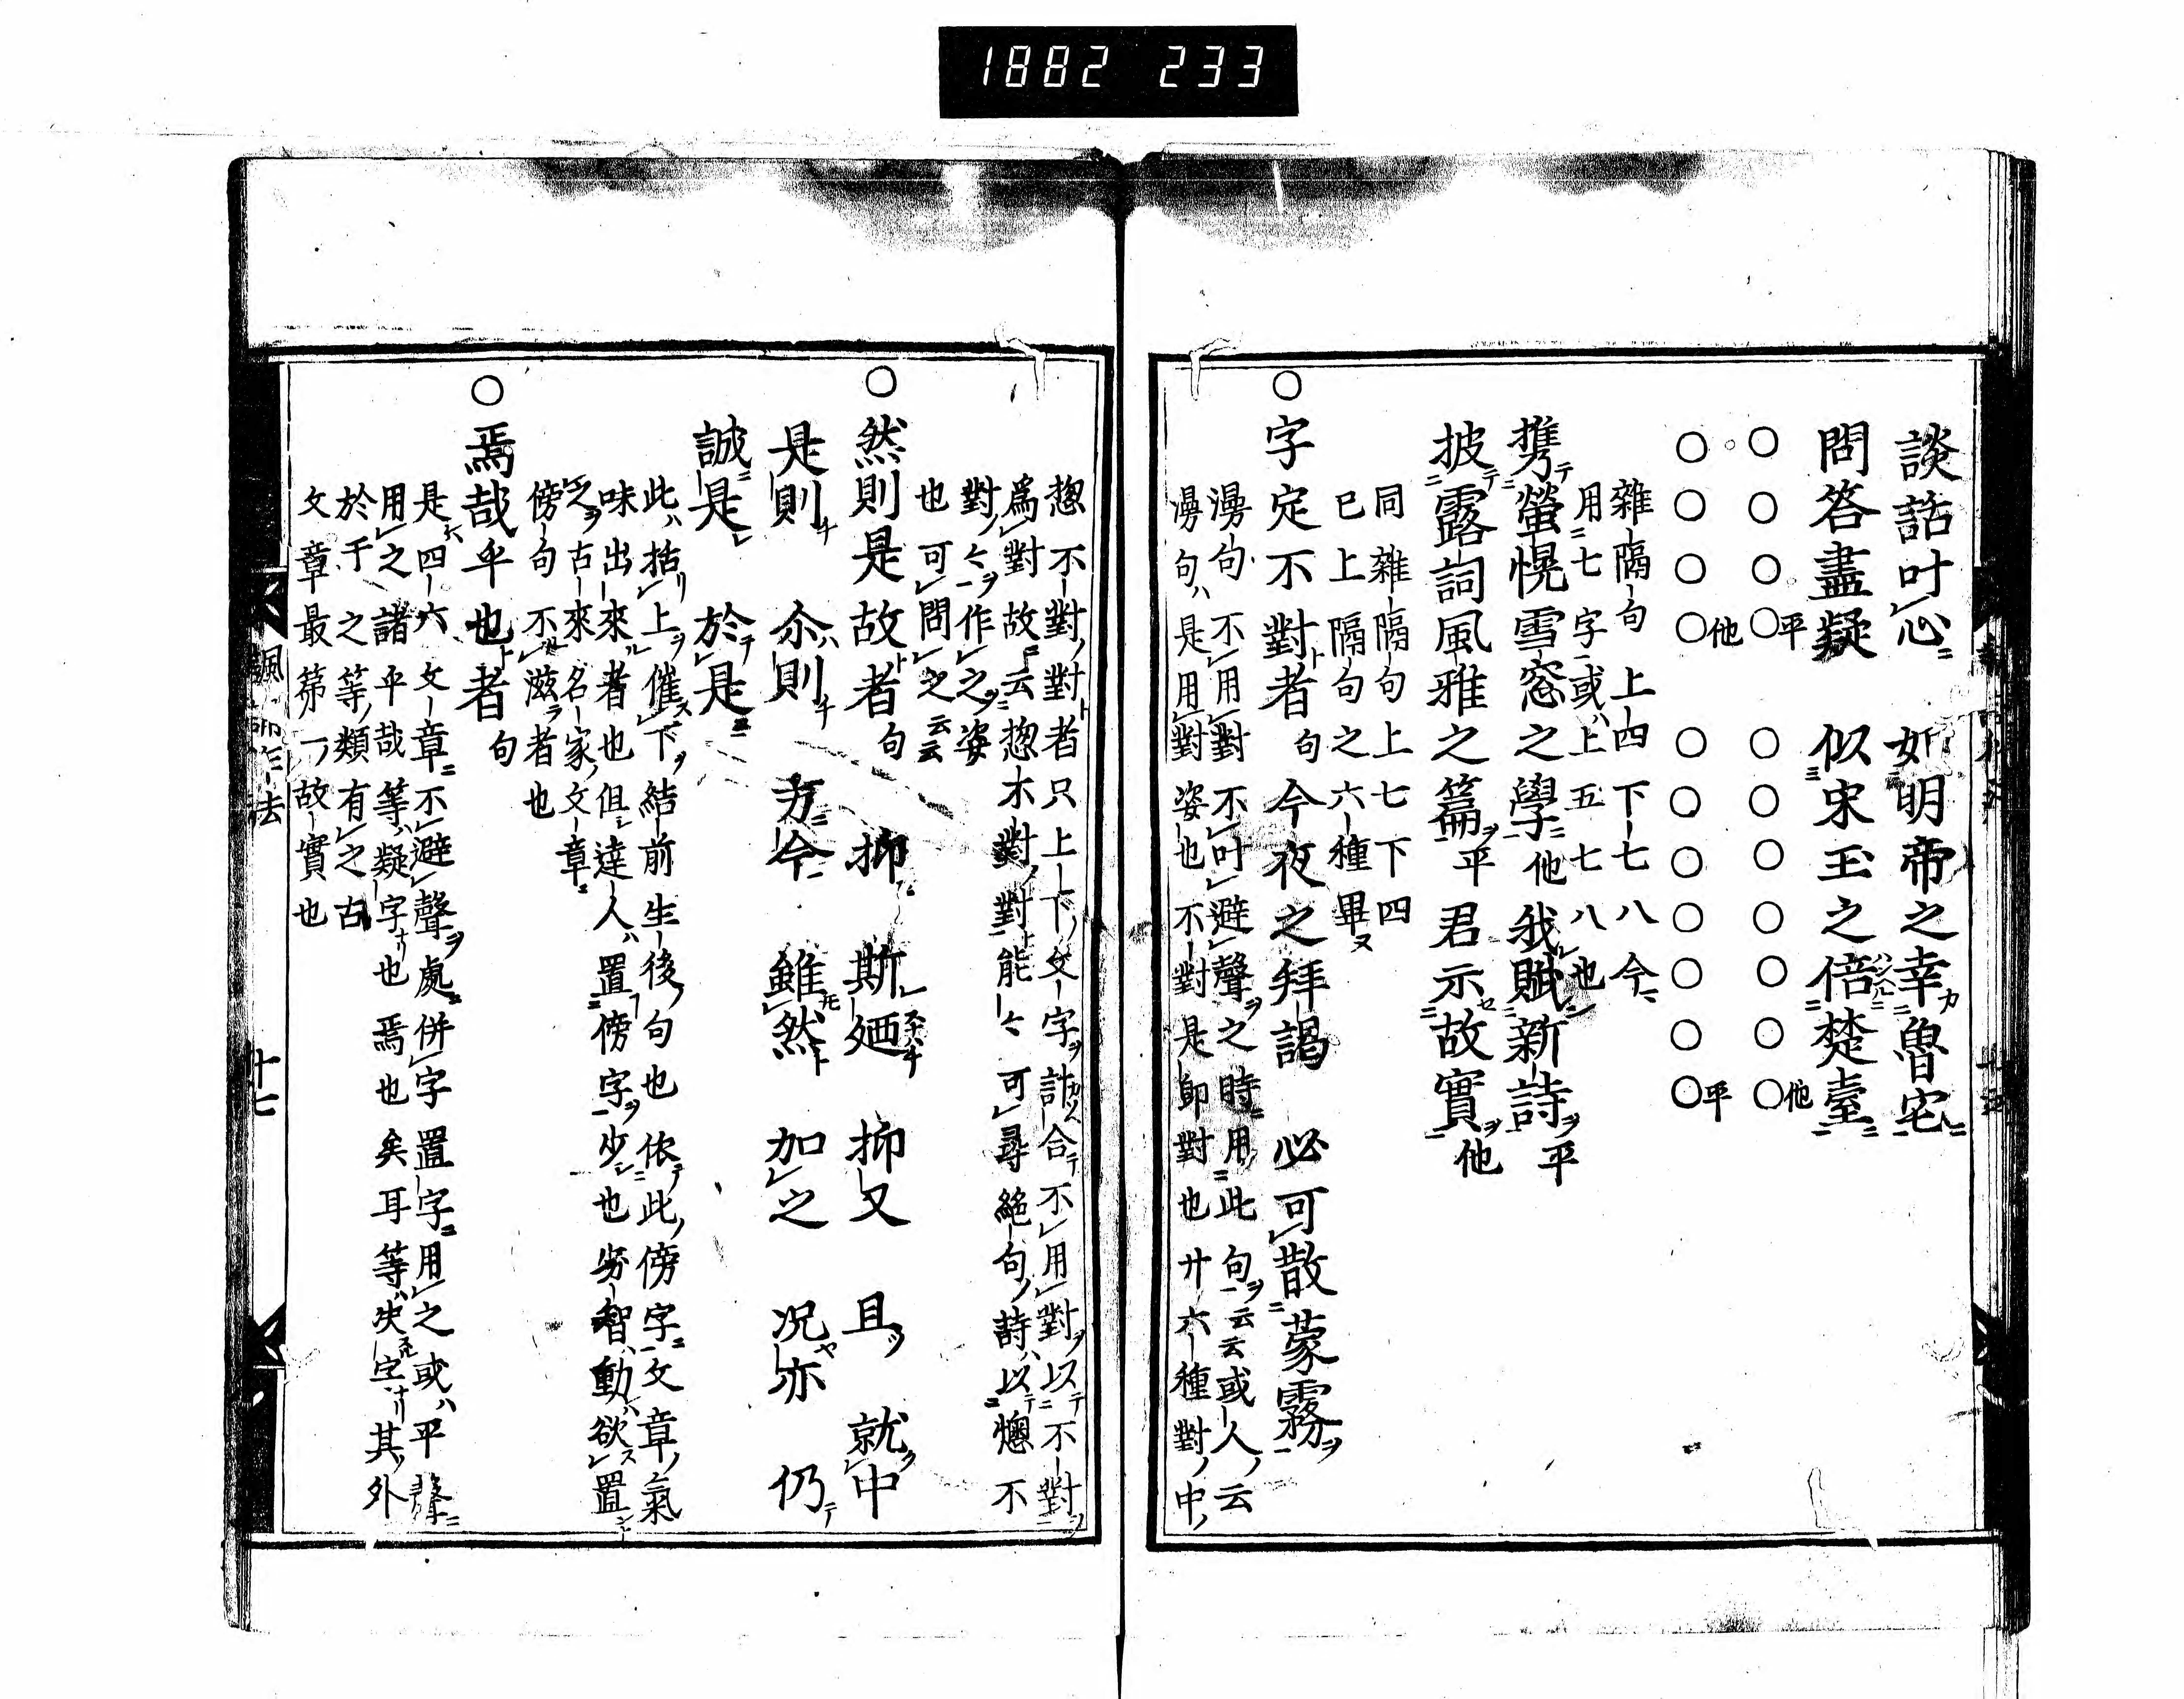 1882 233
談話叶心 如明帝之幸魯宅
問答盡疑 似宋玉之倍楚臺
○○○○平 ○○○○○○○他
○○○○他 ○○○○○○○平
雜隔句 上四 下七八 今
用七字或上五 七八也
携螢幌雪窓之學 他 我賦新詩 平
披露詞風雅之篇 平 君示故實 他
同雜隔句 上七下四
已上隔句之六種畢
○字定不對者 句 今夜之拜謁 必可散蒙霧
漫句不用對不叶避聲之時用此句云云或人云
漫句是用對姿也不對是即對也廿六種對中
惣不對對者只上下文字計合不用對以不對
爲對故云惣不對對能々可尋絶句詩以惣不
對々作之姿
也可問之云云
○然則是故者 句 抑 斯廼 抑又 且 就中
是則 尒則 方今 雖然 加之 况亦 仍
誠是 於是
此括上催下結前生後句也依此傍字文章氣
味出來者也但達人置傍字少也劣智動欲置
之古來名家文章
傍句不滋者也
○焉哉乎也者 句
是四六文章不避聲處併字置字用之或平聲
用之諸乎哉等疑字也焉也矣耳等决定其外
於于之等類有之古
文章最第一故實也
十七